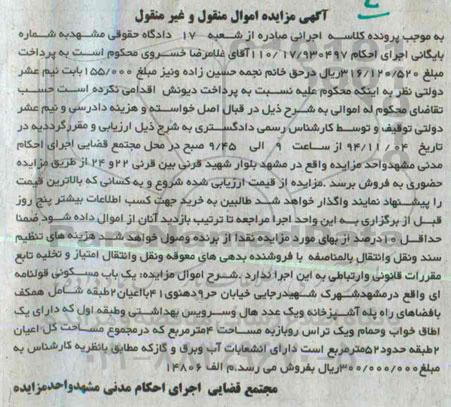 آگهی مزایده اموال منقول و غیر منقول
به موجب پرونده کلاسه اجرائی صادره از شعبه ۱۷ دادگاه حقوقی مشهد به شماره
بایگانی اجرای احکام ۱۱۰/۱۷/۹۳۰۴۹۷ آقای غلامرضا خسروی محکوم است به پرداخت
مبلغ ۳۱۶/۱۲۰/۵۲۰ ریال در حق خانم نجمه حسین زاده ونیز مبلغ ۱۵۵/۰۰۰ بابت نیم عشر
دولتی نظر به اینکه محکوم علیه نسبت به پرداخت دیونش اقدامی نکرده است حسب
تقاضای محکوم له اموالی به شرح ذیل در قبال اصل خواسته و هزینه دادرسی و نیم عشر
دولتی توقیف و توسط کارشناس رسمی دادگستری به شرح ذیل ارزیابی و مقرر گردیده در
تاریخ ۹۴/۱۱/۰۴ از ساعت ۹ الی ۹/۴۵ صبح در محل مجتمع قضایی اجرای احکام
مدنی مشهد واحد مزایده واقع در مشهد بلوار شهید قرنی بین قرنی ۲۲ و ۲۴ از طریق مزایده
حضوری به فروش برسد .مزایده از قیمت ارزیابی شده شروع و به کسانی که بالاترین قیمت
را پیشنهاد نمایند واگذار خواهد شد طالبین به خرید جهت کسب اطلاعات بیشتر پنج روز
قبل از برگزاری به این واحد اجرا مراجعه تا ترتیب بازدید آنان از اموال داده شود ضمنا
حداقل ۱۰ درصد از بهای مورد مزایده نقدا از برنده وصول خواهد شد. هزینه های تنظیم
سند ونقل وانتقال بالمناصفه با فروشنده بدهی های معوقه ونقل وانتقال امتیاز و تخلیه تابع
مقررات قانونی وارتباطی به این اجرا ندارد .شرح اموال مزایده: یک باب مسکونی قولنامه
ای واقع در مشهد شهرک شهید رجایی خیابان حر ۹ دهنوی ۴۱ با اعیان ۲ طبقه شامل همکف
بافضاهای راه پله آشپزخانه ویک عدد هال وسرویس بهداشتی وطبقه اول که دارای یک
اطاق خواب وحمام ویک تراس روبازبه مساحت ۲۴ مترمربع که درمجموع مساحت کل اعیان
۲ طبقه حدود ۵۲ مترمربع است دارای انشعابات آب وبرق و گازکه مطابق بانظریه کارشناس به
مبلغ ۳۰۰/۰۰۰/۰۰۰ ریال بفروش می رسد.م الف ۱۴۸۰۶
مجتمع قضایی اجرای احکام مدنی مشهد واحد مزایده